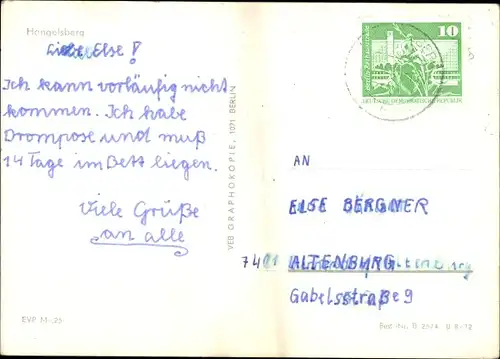 Hangelsberg
Liebe Else!
Ich kann vorläufig nicht
kommen. Ich habe
Trompose und muß
14 Tage im Bett liegen.
Viele Grüße
an alle
EVP M -,25
VEB GRAPHOKOPIE, 1071 BERLIN
10
DEUTSCHE DEMOKRATISCHE REPUBLIK
AN
ELSE BERGNER
7401 ALTENBURG
Gabelsstraße 9